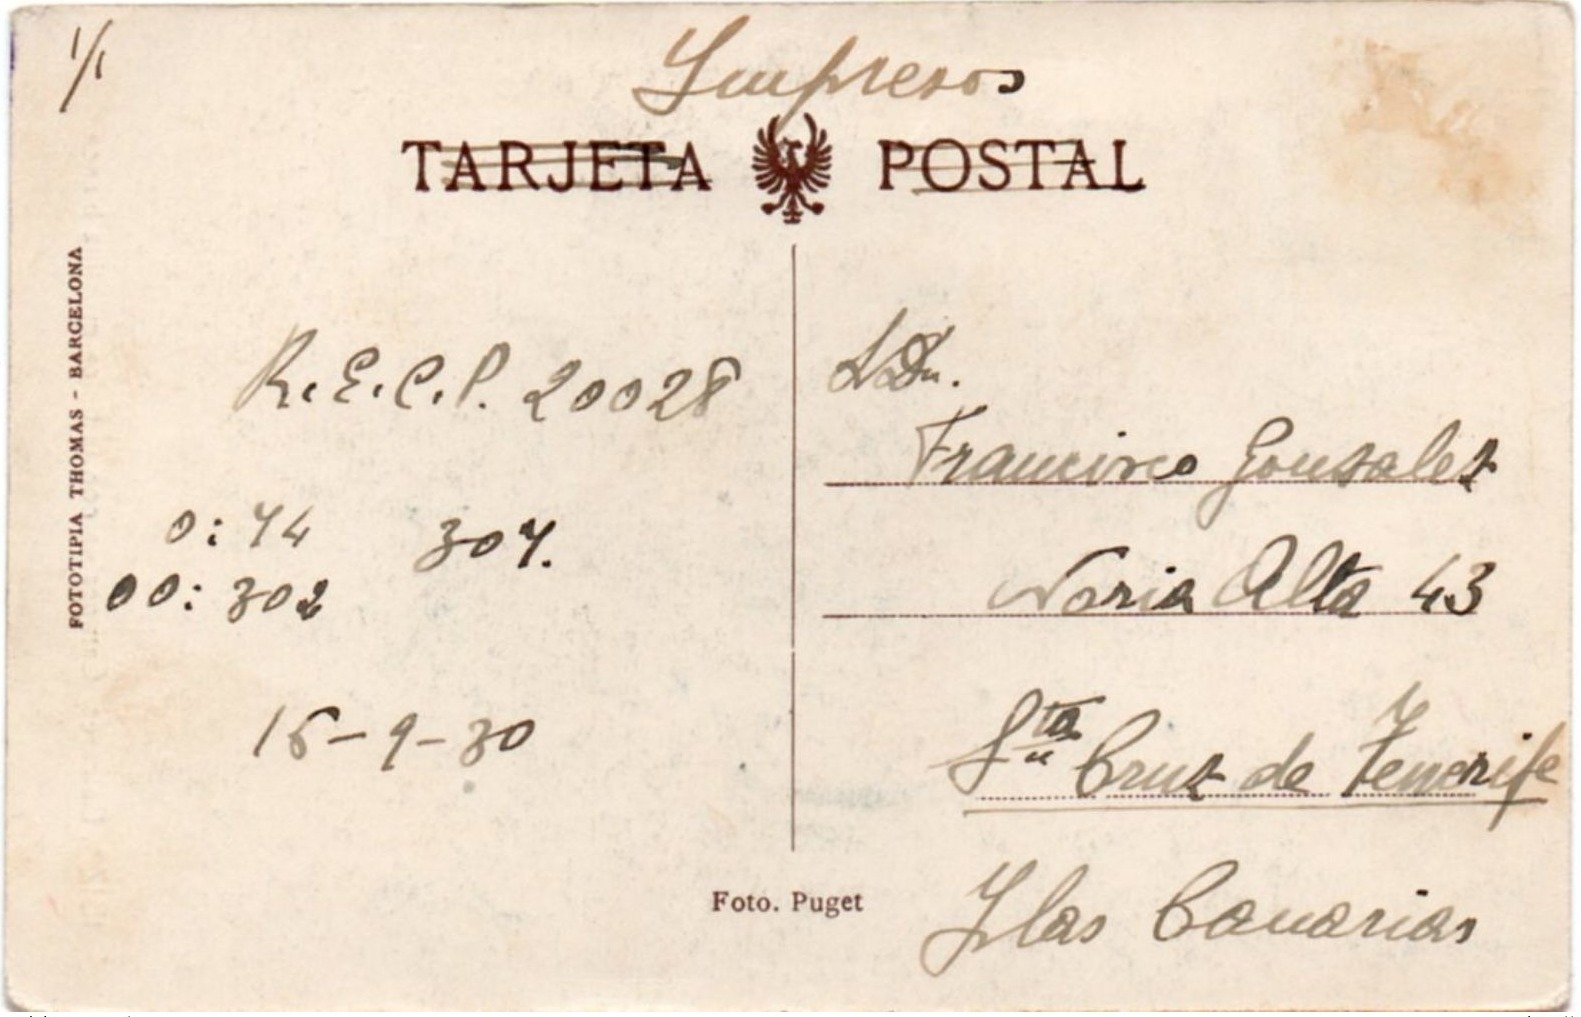 1/1
Impresos
TARJETA POSTAL
FOTOTIPIA THOMAS - BARCELONA
R.E.C.P. 20028
0: 74 307.
00: 302
16-9-30
Francisco Gonzalez
Noria Alta 43
Sta Cruz de Tenerife
Islas Canarias
Foto. Puget